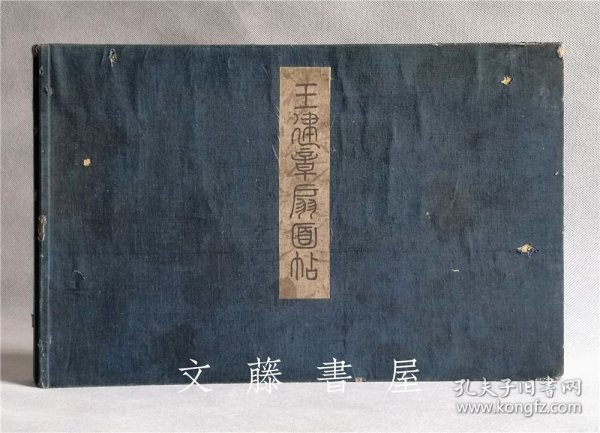 王建章扇面帖
文藤書屋
孔夫子旧书网
www.kongfz.com